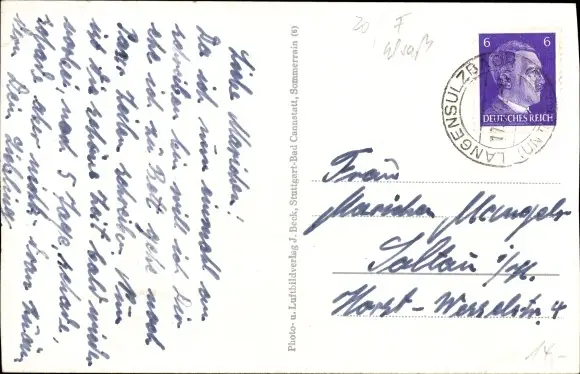 Liebe Marichen!
Da ich nun einmall am
schreiben bin will ich Dir
ehe ich zu Bet gehe noch
paar Zeilen schreiben. Nun
ist die schöne Zeit bald wieder
vorbei, noch 5 Tage, schade,
aber nicht
Dein
Photo- u. Luftbildverlag J. Beck, Stuttgart-Bad Cannstatt, Sommerrain (6)
30 F
Elsaß
6 6
DEUTSCHES REICH
LANGENSULZBACH
Frau
Marichen Mangels
Soltau i/H.
Horst-Wesselstr. 4
14,-